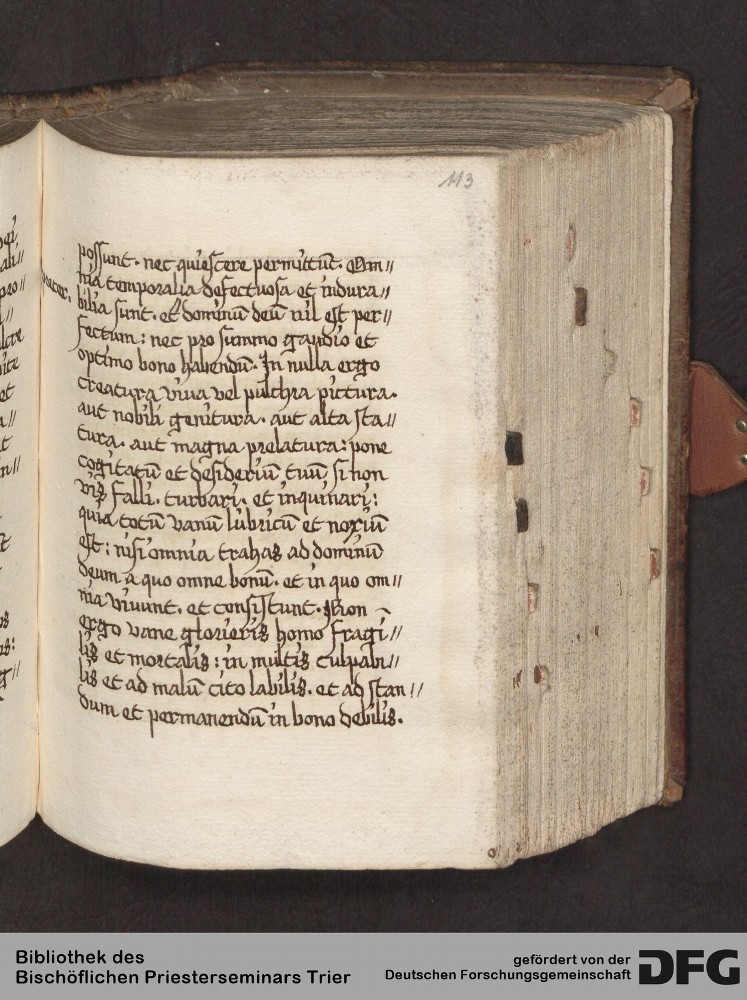 113
possunt. nec quiescere permittūt. Om//
nia temporalia defectuosa et indura//
bilia sunt. et p̄ dominū deū nil est per//
fectum: nec pro summo gaudio et
optimo bono habendū. In nulla ergo
creatura viua vel pulchra pictura.
aut nobili genitura. aut alta sta//
tura. aut magna prelatura: pone
cogitatū et desideriū tuū si non
vis falli. turbari. et inquinari:
quia totū vanū lubricū et noxiū
est: nisi omnia trahas ad dominū
deum a quo omne bonū. et in quo om//
nia viuunt. et consistunt. Non
ergo vane glorieris homo fragi//
lis et mortalis: in multis culpabi//
lis et ad malū cito labilis. et ad stan//
dum et permanendū in bono debilis.
Bibliothek des
Bischöflichen Priesterseminars Trier
gefördert von der
Deutschen Forschungsgemeinschaft
DFG